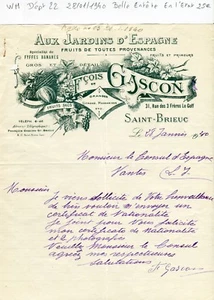 WM Dépt 22 28/01/1940 Belle Entête En l'Etat 25€
AUX JARDINS D'ESPAGNE
FRUITS DE TOUTES PROVENANCES
GROS ET DÉTAIL
FÇOIS GASCON
31, Rue des 3 Frères Le Goff
SAINT-BRIEUC
Le 28 Janvier 1940
Monsieur le Consul d'Espagne
Nantes (L. I.)
Monsieur
Je viens sollicite de votre bienveillance
de bien vouloir m'envoyer un
certificat de Nationalité
Je joint pour vous
mon certificats de nationalité
et 2 photografies
Veuillez Monsieur le Consul
agréer mes respectueuses
salutations
F. Gascon